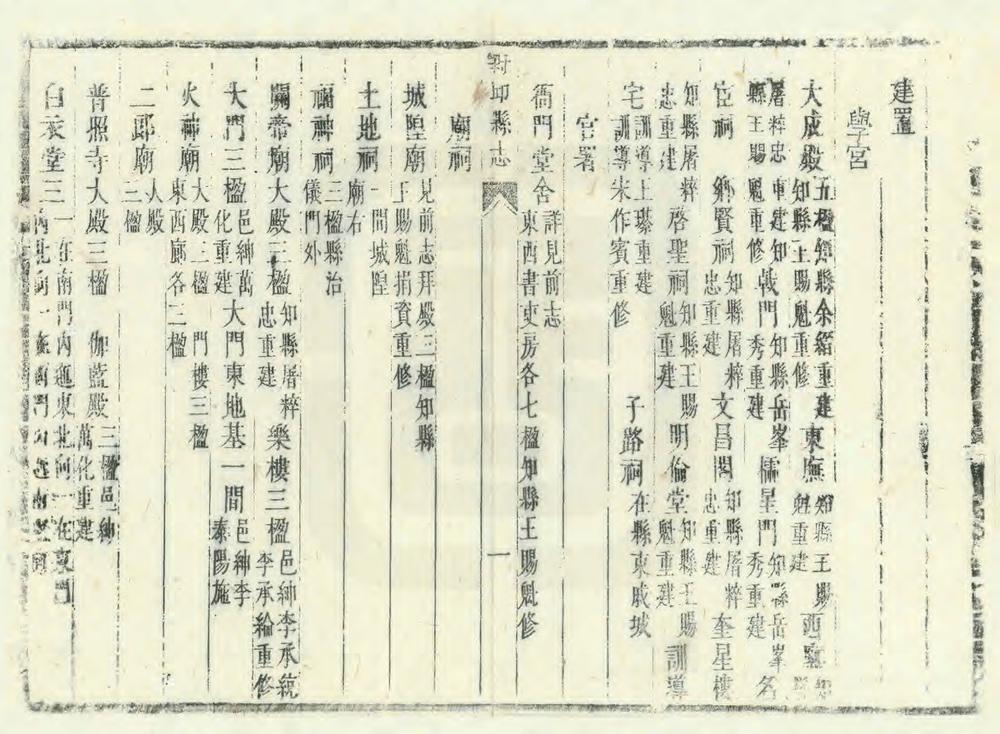 建置
學宮
大成殿五楹知縣余縉重建知縣王賜魁重修 東廡知縣王賜魁重建 西廡知縣
屠粹忠重建知縣王賜魁重修 戟門知縣岳峯秀重建 櫺星門知縣岳峯秀重建 名
宦祠 鄉賢祠知縣屠粹忠重建 文昌閣知縣屠粹忠重建 奎星樓
知縣屠粹忠重建 啓聖祠知縣王賜魁重建 明倫堂知縣王賜魁重建 訓導
宅訓導王璂重建訓導宋作賓重修 子路祠在縣東戚城
官署
衙門堂舍詳見前志東西書吏房各七楹知縣王賜魁修
封邱縣志
一
廟祠
城隍廟見前志拜殿三楹知縣王賜魁捐資重修
土地祠一間城隍廟右
福神祠三楹縣治儀門外
關帝廟大殿三楹知縣屠粹忠重建 樂樓三楹邑紳李承統李承綸重修
大門三楹邑紳萬化重建 大門東地基一間邑紳李泰陽施
火神廟大殿三楹東西廊各三楹 門樓三楹
二郎廟大殿三楹
普照寺大殿三楹 伽藍殿三楹邑紳萬化重建
白衣堂三一在南門內迤東北向一在東門內北向一在西門內